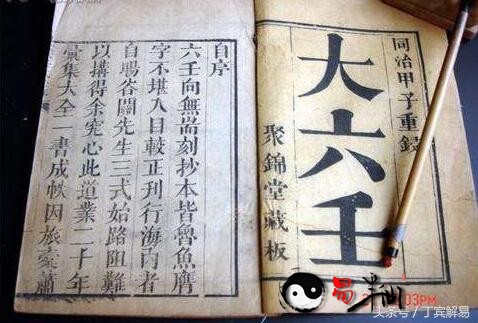 同治甲子重鐫
大六壬
聚錦堂藏板
自序
六壬向無耑刻抄本皆魯魚膺
字不堪入目較正刊行海内者
自塲先生三式始路阻難
以搆得余究心此道業二十年
彙集大全一書成帙因旅橐蕭
易半仙
03PM
头条号 / 丁宾解易